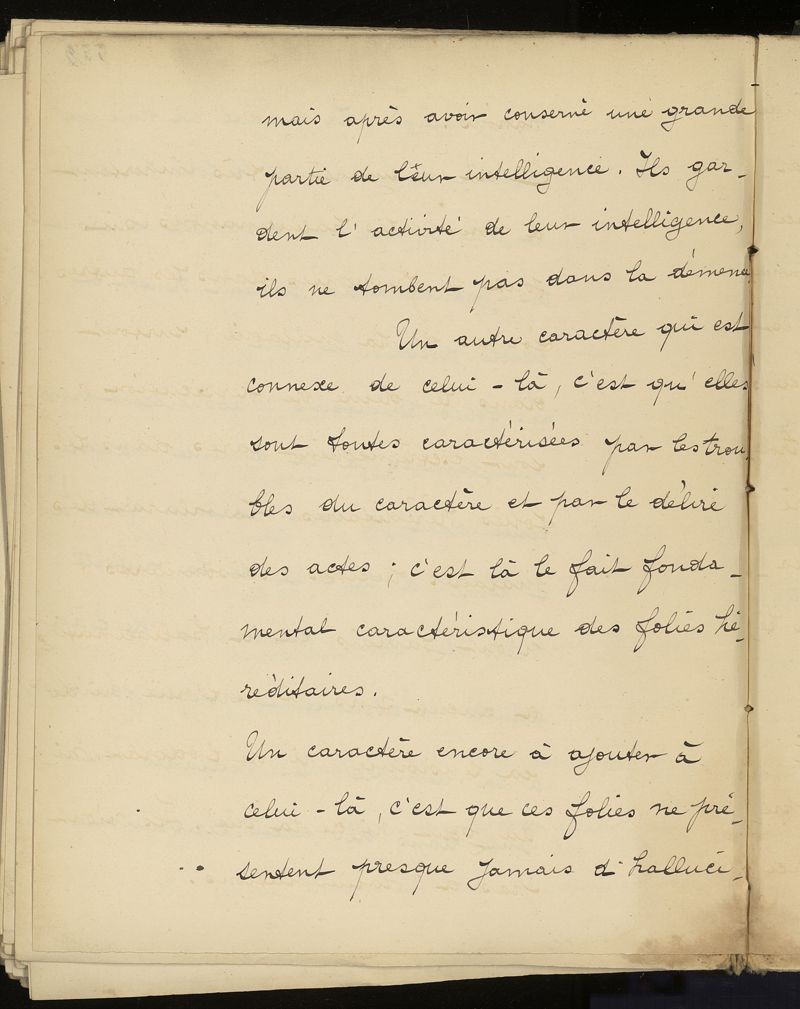 mais après avoir conservé une grande
partie de leur intelligence. Ils gar-
dent l'activité de leur intelligence,
ils ne tombent pas dans la démence
Un autre caractère qui est
connexe de celui-là, c'est qu'elles
sont toutes caractérisées par les trou-
bles du caractère et par le délire
des actes ; c'est là le fait fonda-
mental caractéristique des folies hé-
réditaires.
Un caractère encore à ajouter à
celui-là, c'est que ces folies ne pré-
sentent presque jamais d'halluci-